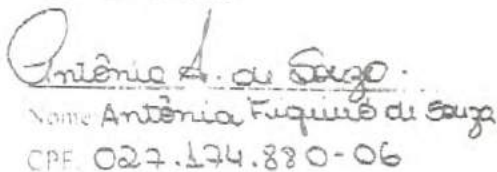 Antônia A. de Souza.
Nome Antônia Fiqueiró de Souza
CPF. 027.174.880-06